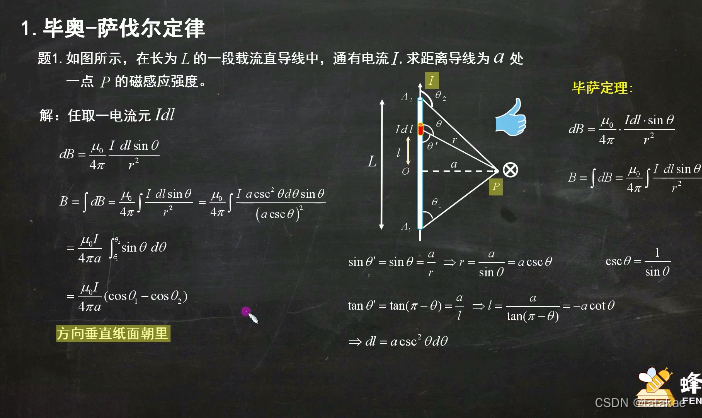 1.毕奥-萨伐尔定律
题1.如图所示，在长为 L 的一段载流直导线中，通有电流 I.求距离导线为 a 处
一点 P 的磁感应强度。
毕萨定理：
解：任取一电流元 Idl
dB = μ₀/4π · I dl sinθ/r²
B = ∫dB = μ₀/4π ∫ I dl sinθ/r² = μ₀/4π ∫ I a csc²θdθ sinθ/(a cscθ)²
= μ₀I/4πa ∫ sinθ dθ
= μ₀I/4πa (cosθ₁ − cosθ₂)
方向垂直纸面朝里
I
θ₂
Idl
θ
θ'
r
l
L
a
O
P
dB = μ₀/4π · Idl·sinθ/r²
B = ∫dB = μ₀/4π ∫ I dl sinθ/r²
sinθ' = sinθ = a/r ⇒ r = a/sinθ = a cscθ
cscθ = 1/sinθ
tanθ' = tan(π−θ) = a/l ⇒ l = a/tan(π−θ) = −a cotθ
⇒ dl = a csc²θdθ
蜂
FEN
CSDN